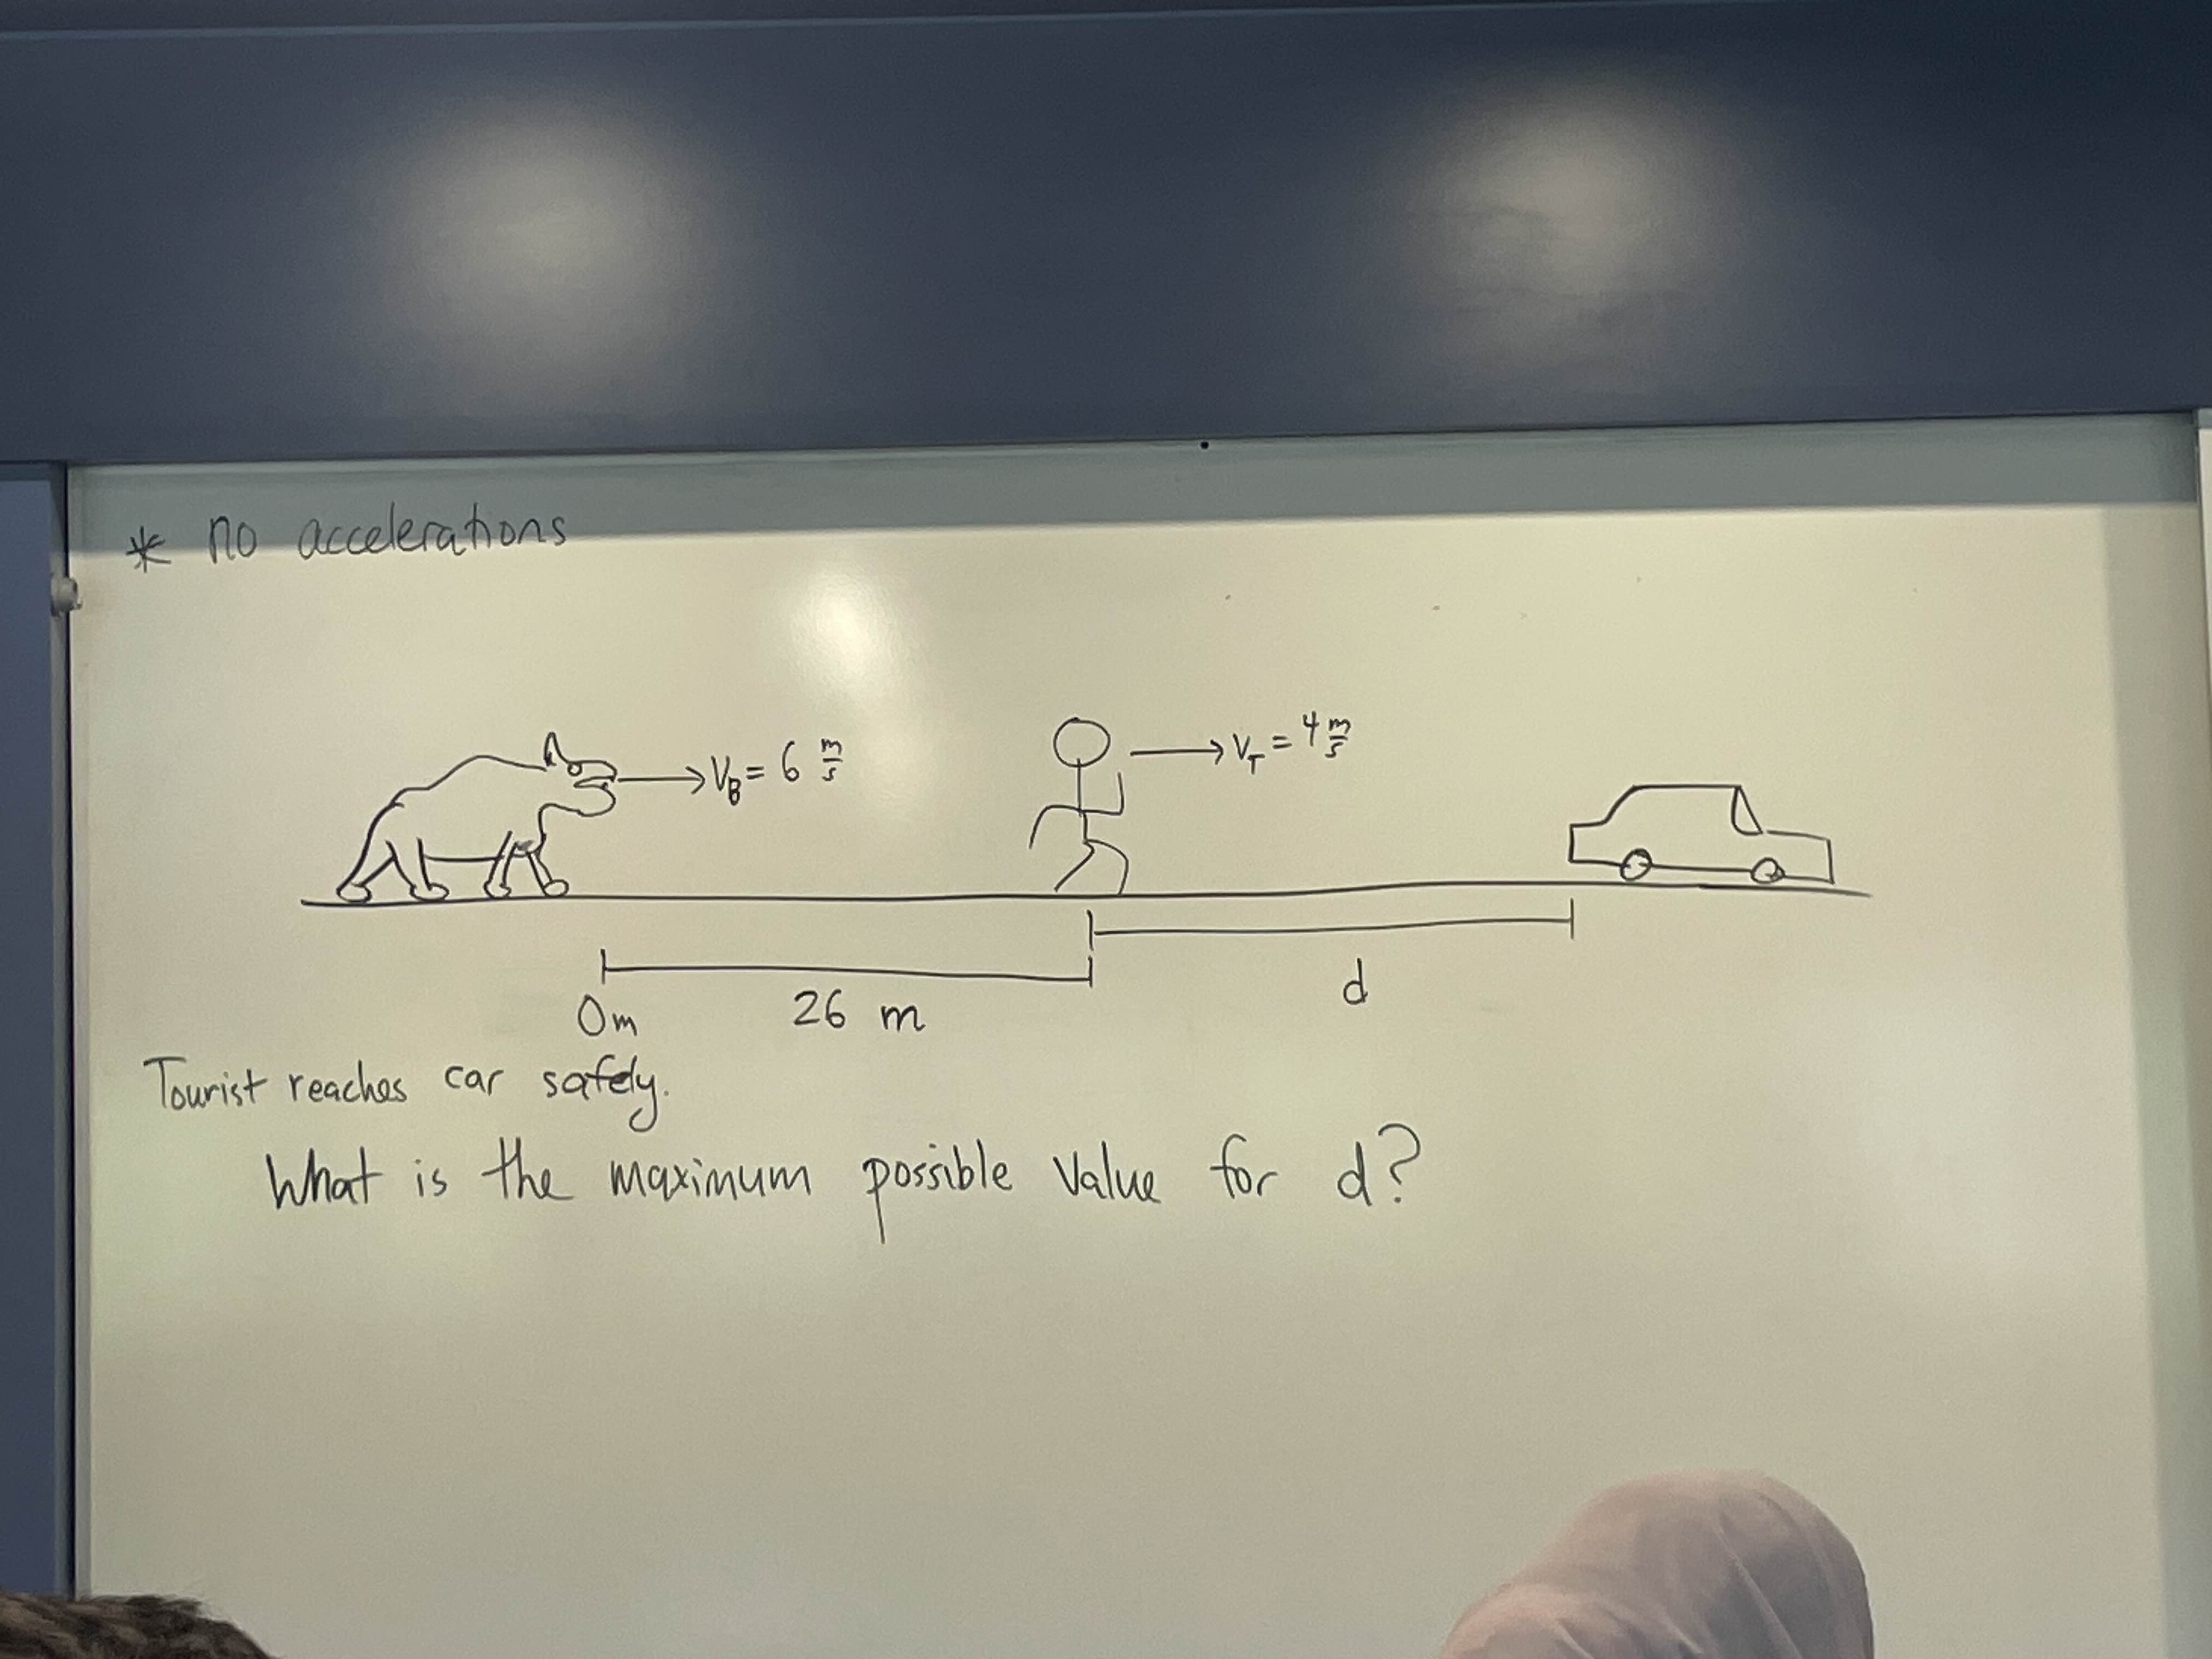 * no accelerations
V_B = 6 m/s
V_T = 4 m/s
d
0m
26 m
Tourist reaches car safely.
What is the maximum possible value for d?